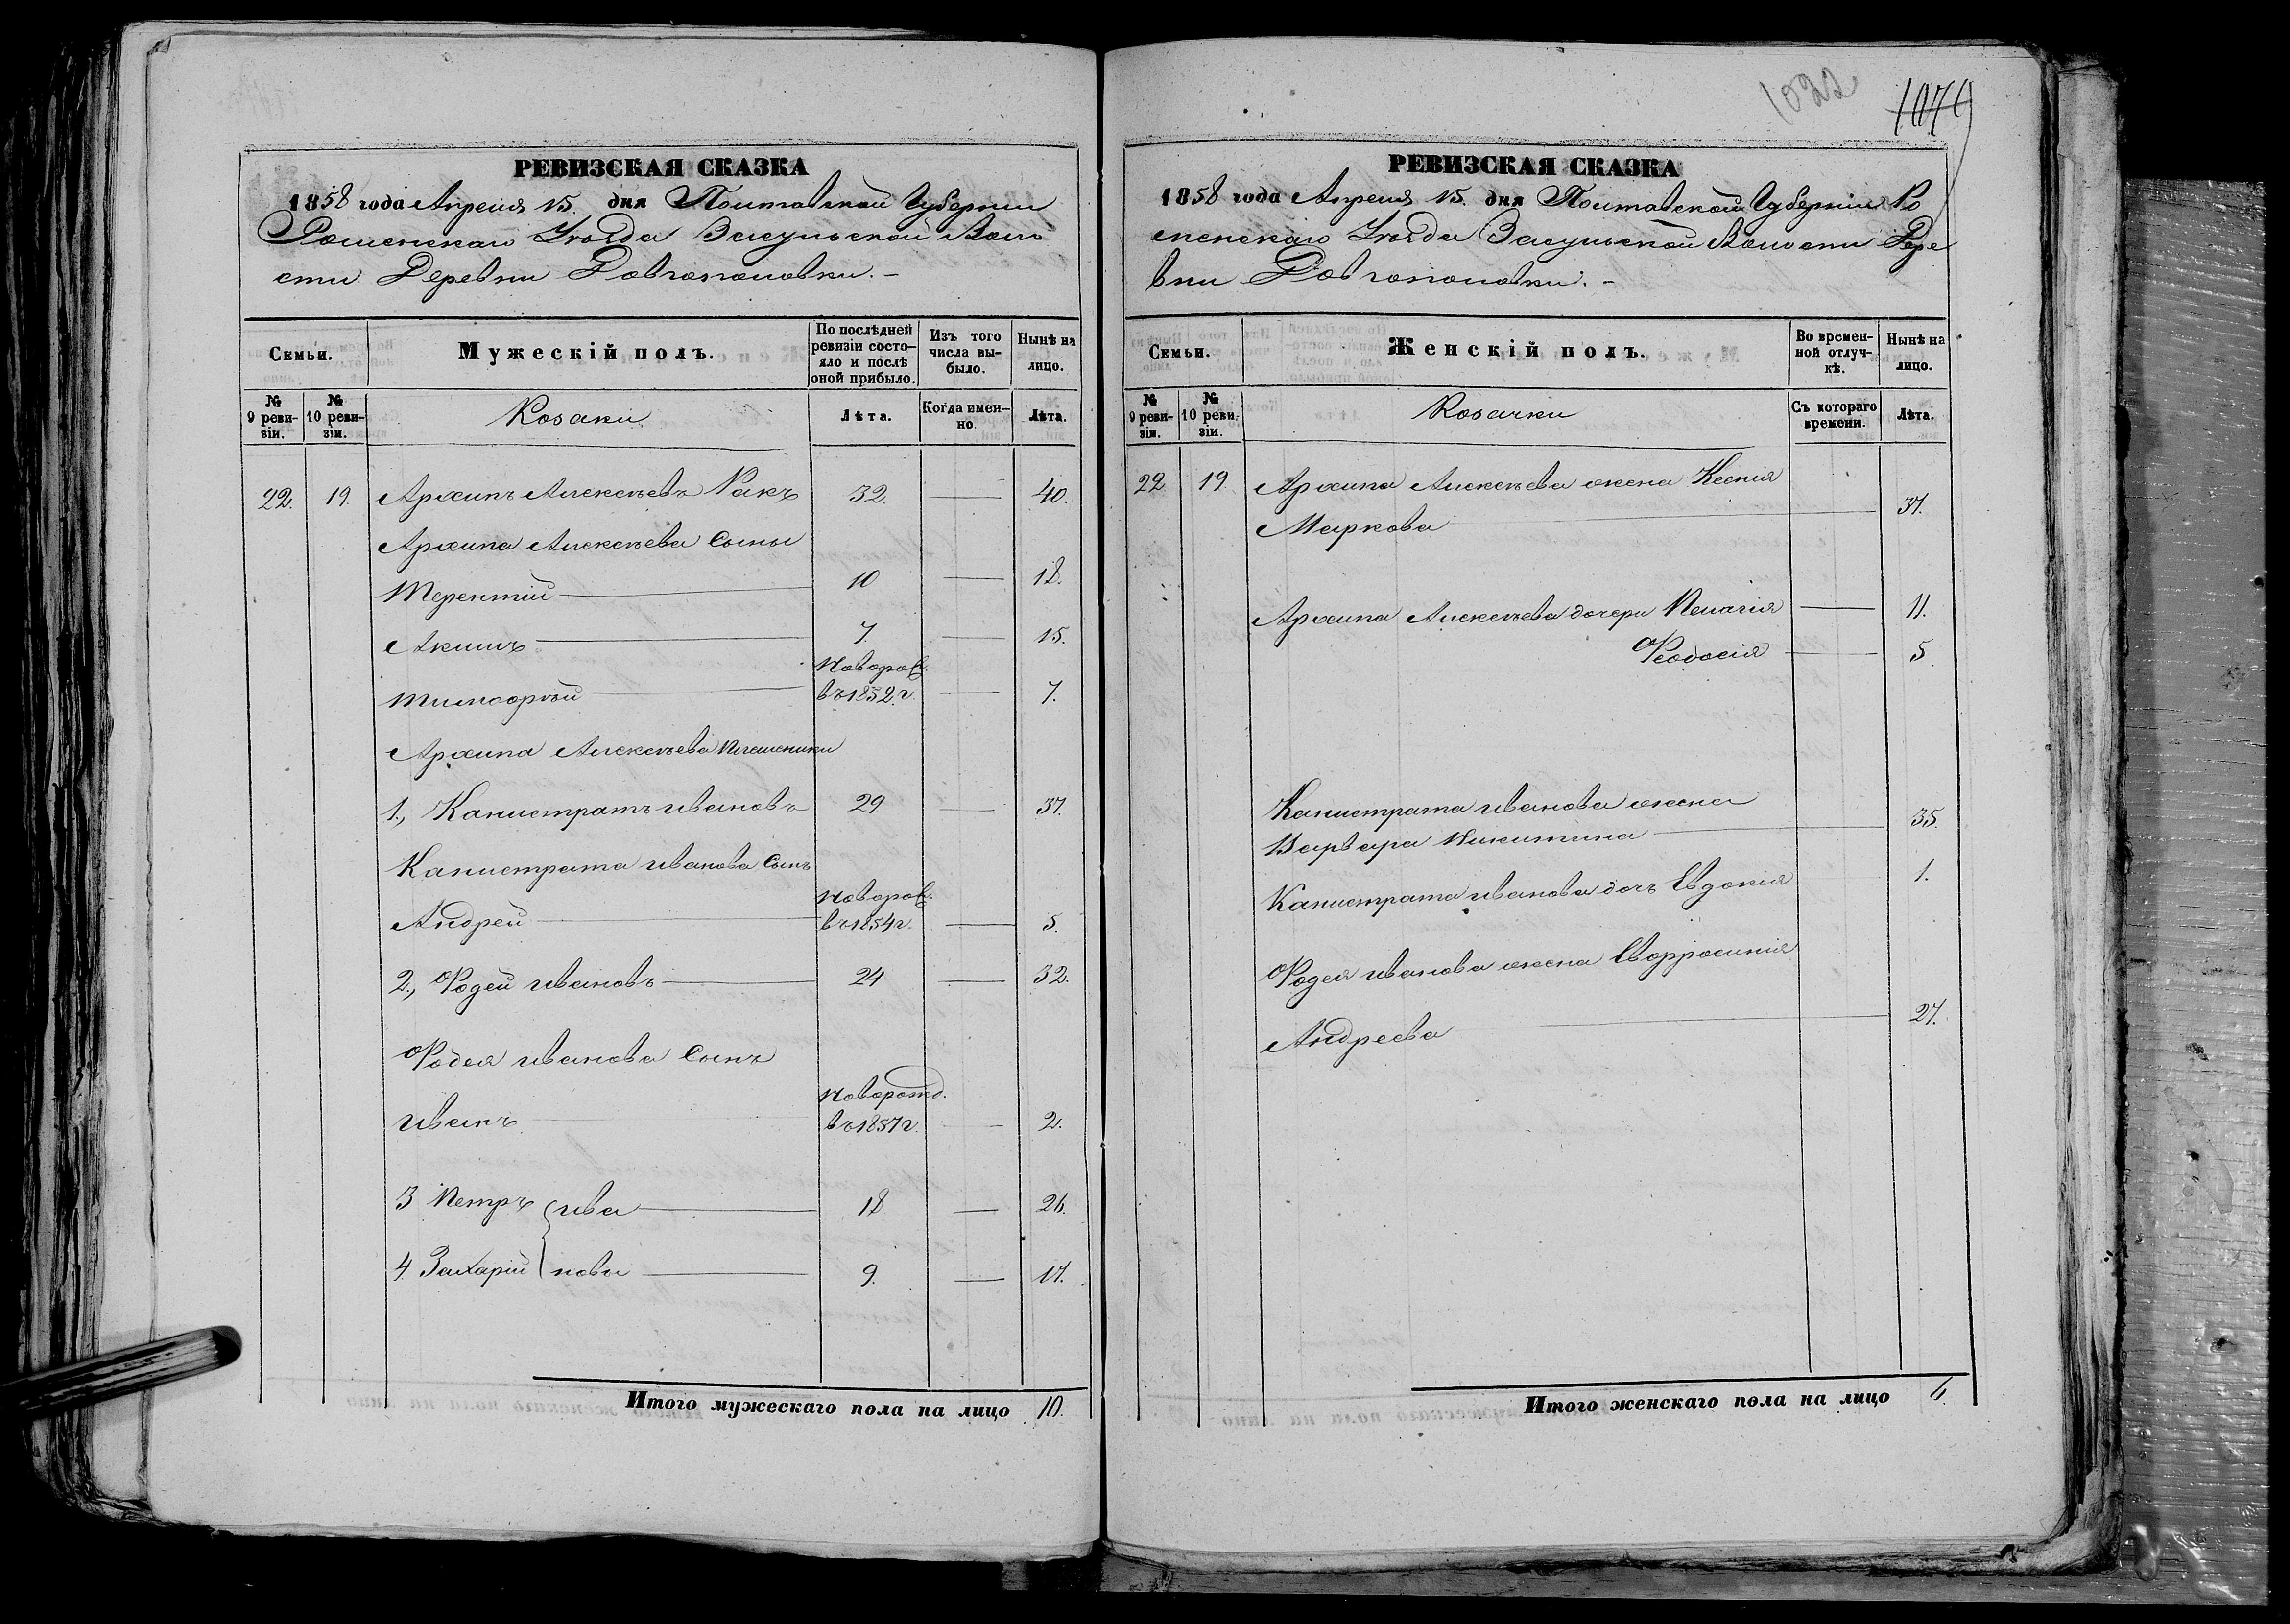 1022
1079
РЕВИЗСКАЯ СКАЗКА
1858 года Апреля 15. дня Полтавской Губернии
Роменскаго Уѣзда Засульской Воло
сти Деревни Довгополовки. –
Семьи.
Мужескій полъ.
По послѣдней ревизіи состояло и послѣ оной прибыло.
Изъ того числа выбыло.
Нынѣ на лицо.
№ 9 ревизіи.
№ 10 ревизіи.
Козаки
Лѣта.
Когда именно.
Лѣта.
22. 19. Архипъ Алексѣевъ Ракъ 32 — 40.
Архипа Алексѣева Сыны
Терентій — 10 — 18.
Акимъ — 7. — 15.
Новорож.
Тимофѣй — въ 1852 г. — 7.
Архипа Алексѣева племеники
1., Калистратъ Ивановъ 29 — 37.
Калистрата Иванова Сынъ
новорож.
Андрей — въ 1854 г. — 5.
2., Фодей Ивановъ — 24 — 32.
Фодея Иванова Сынъ
новорожд.
Иванъ — въ 1857 г. — 2.
3 Петръ { Ива — 18 — 26.
4 Захарій { новы — 9. — 17.
Итого мужескаго пола на лицо 10.
РЕВИЗСКАЯ СКАЗКА
1858 года Апреля 15. дня Полтавской Губерніи Ро
менскаго Уѣзда Засульской Волости Дере
вни Довгополовки. –
Семьи.
Женскій полъ.
Во временной отлучкѣ.
Нынѣ на лицо.
№ 9 ревизіи.
№ 10 ревизіи.
Козачки
Съ котораго времени.
Лѣта.
22 19. Архипа Алексѣева жена Ксенія
Маркова — 37.
Архипа Алексѣева дочери Пелагія — 11.
Феодосія — 5.
Калистрата Иванова жена
Варвара Никитина — 35.
Калистрата Иванова дочь Евдокія 1.
Фодея Иванова жена Евфросинія
Андреева — 27.
Итого женскаго пола на лицо 6.